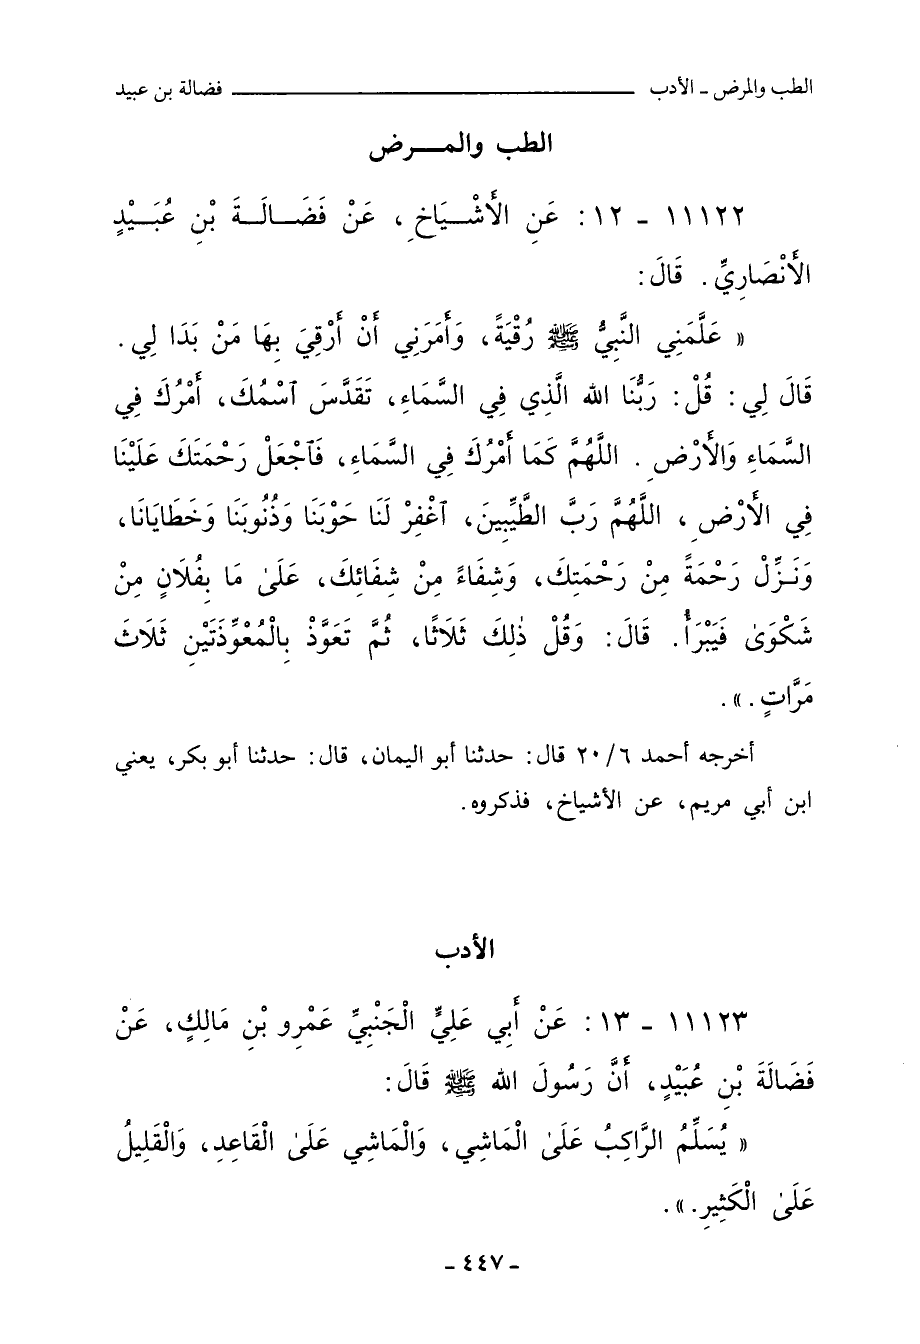 الطب والمرض - الأدب ــــــــــــــــــــ فضالة بن عبيد
الطب والمـــرض
١١١٢٢ - ١٢ : عَنِ الأَشْـيَاخِ ، عَنْ فَضَـالَـةَ بْنِ عُبَـيْـدٍ
الأَنْصَارِيِّ . قَالَ :
« عَلَّمَنِي النَّبِيُّ ﷺ رُقْيَةً، وَأَمَرَنِي أَنْ أَرْقِيَ بِهَا مَنْ بَدَا لِي .
قَالَ لِي : قُلْ : رَبُّنَا الله الَّذِي فِي السَّمَاءِ، تَقَدَّسَ ٱسْمُكَ، أَمْرُكَ فِي
السَّمَاءِ وَالأَرْضِ . اللَّهُمَّ كَمَا أَمْرُكَ فِي السَّمَاءِ، فَٱجْعَلْ رَحْمَتَكَ عَلَيْنَا
فِي الأَرْضِ ، اللَّهُمَّ رَبَّ الطَّيِّبِينَ، ٱغْفِرْ لَنَا حَوْبَنَا وَذُنُوبَنَا وَخَطَايَانَا،
وَنَزِّلْ رَحْمَةً مِنْ رَحْمَتِكَ، وَشِفَاءً مِنْ شِفَائِكَ، عَلَىٰ مَا بِفُلَانٍ مِنْ
شَكْوَىٰ فَيَبْرَأُ. قَالَ : وَقُلْ ذٰلِكَ ثَلَاثًا، ثُمَّ تَعَوَّذْ بِالْمُعَوِّذَتَيْنِ ثَلَاثَ
مَرَّاتٍ . » .
أخرجه أحمد ٢٠/٦ قال : حدثنا أبو اليمان، قال : حدثنا أبو بكر، يعني
ابن أبي مريم، عن الأشياخ، فذكروه.
الأدب
١١١٢٣ - ١٣ : عَنْ أَبِي عَلِيٍّ الْجَنْبِيِّ عَمْرِو بْنِ مَالِكٍ، عَنْ
فَضَالَةَ بْنِ عُبَيْدٍ، أَنَّ رَسُولَ الله ﷺ قَالَ :
« يُسَلِّمُ الرَّاكِبُ عَلَىٰ الْمَاشِي، وَالْمَاشِي عَلَىٰ الْقَاعِدِ، وَالْقَلِيلُ
عَلَىٰ الْكَثِيرِ. » .
- ٤٤٧ -